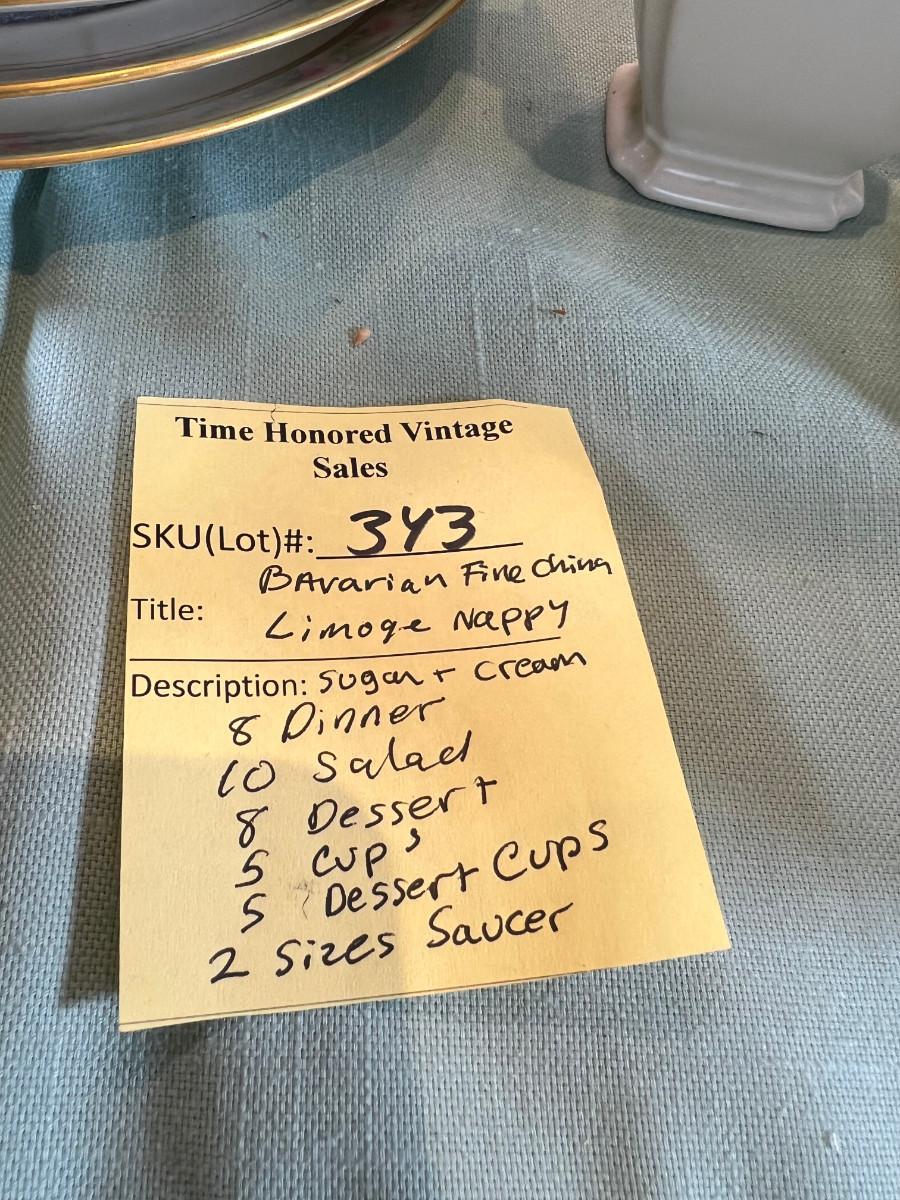 Time Honored Vintage
Sales
SKU(Lot)#: 343
BAvarian Fine China
Title: Limoge Nappy
Description: Sugar + Cream
8 Dinner
10 Salad
8 Dessert
5 Cup's
5 Dessert Cups
2 Sizes Saucer